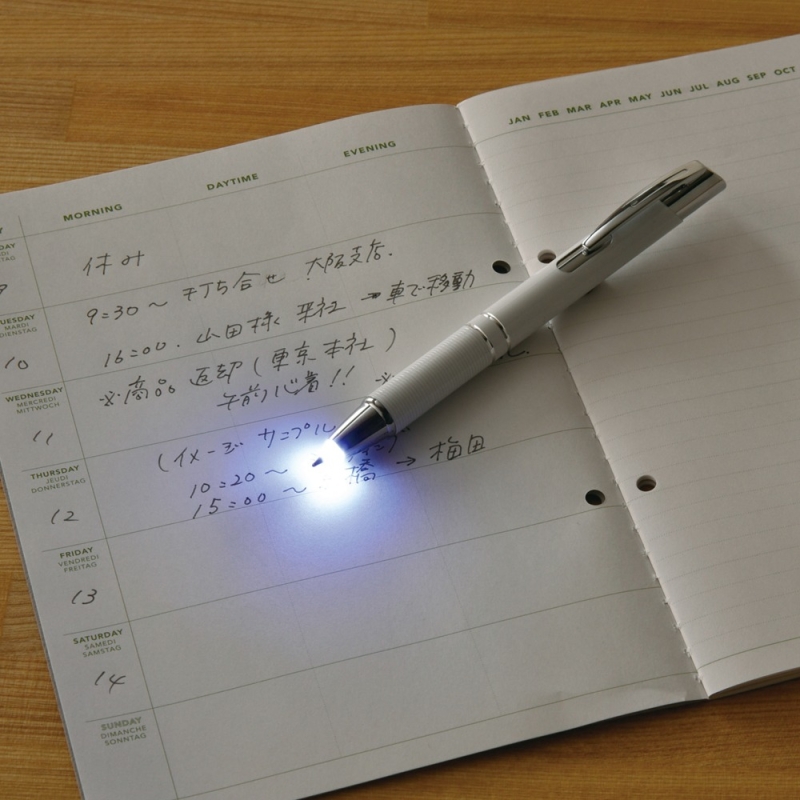 JAN FEB MAR APR MAY JUN JUL AUG SEP OCT
MORNING DAYTIME EVENING
休み
9:30～ 打ち合せ 大阪支店.
TUESDAY
MARDI
DIENSTAG
10
16:00. 山田様 来社 → 車で移動
※商品 返却(東京本社)
午前必着!! ※
WEDNESDAY
MERCREDI
MITTWOCH
11
(イメージ サンプル
THURSDAY
JEUDI
DONNERSTAG
12
10:20～
15:00～ 橋 → 梅田
FRIDAY
VENDREDI
FREITAG
13
SATURDAY
SAMEDI
SAMSTAG
14
SUNDAY
DIMANCHE
SONNTAG